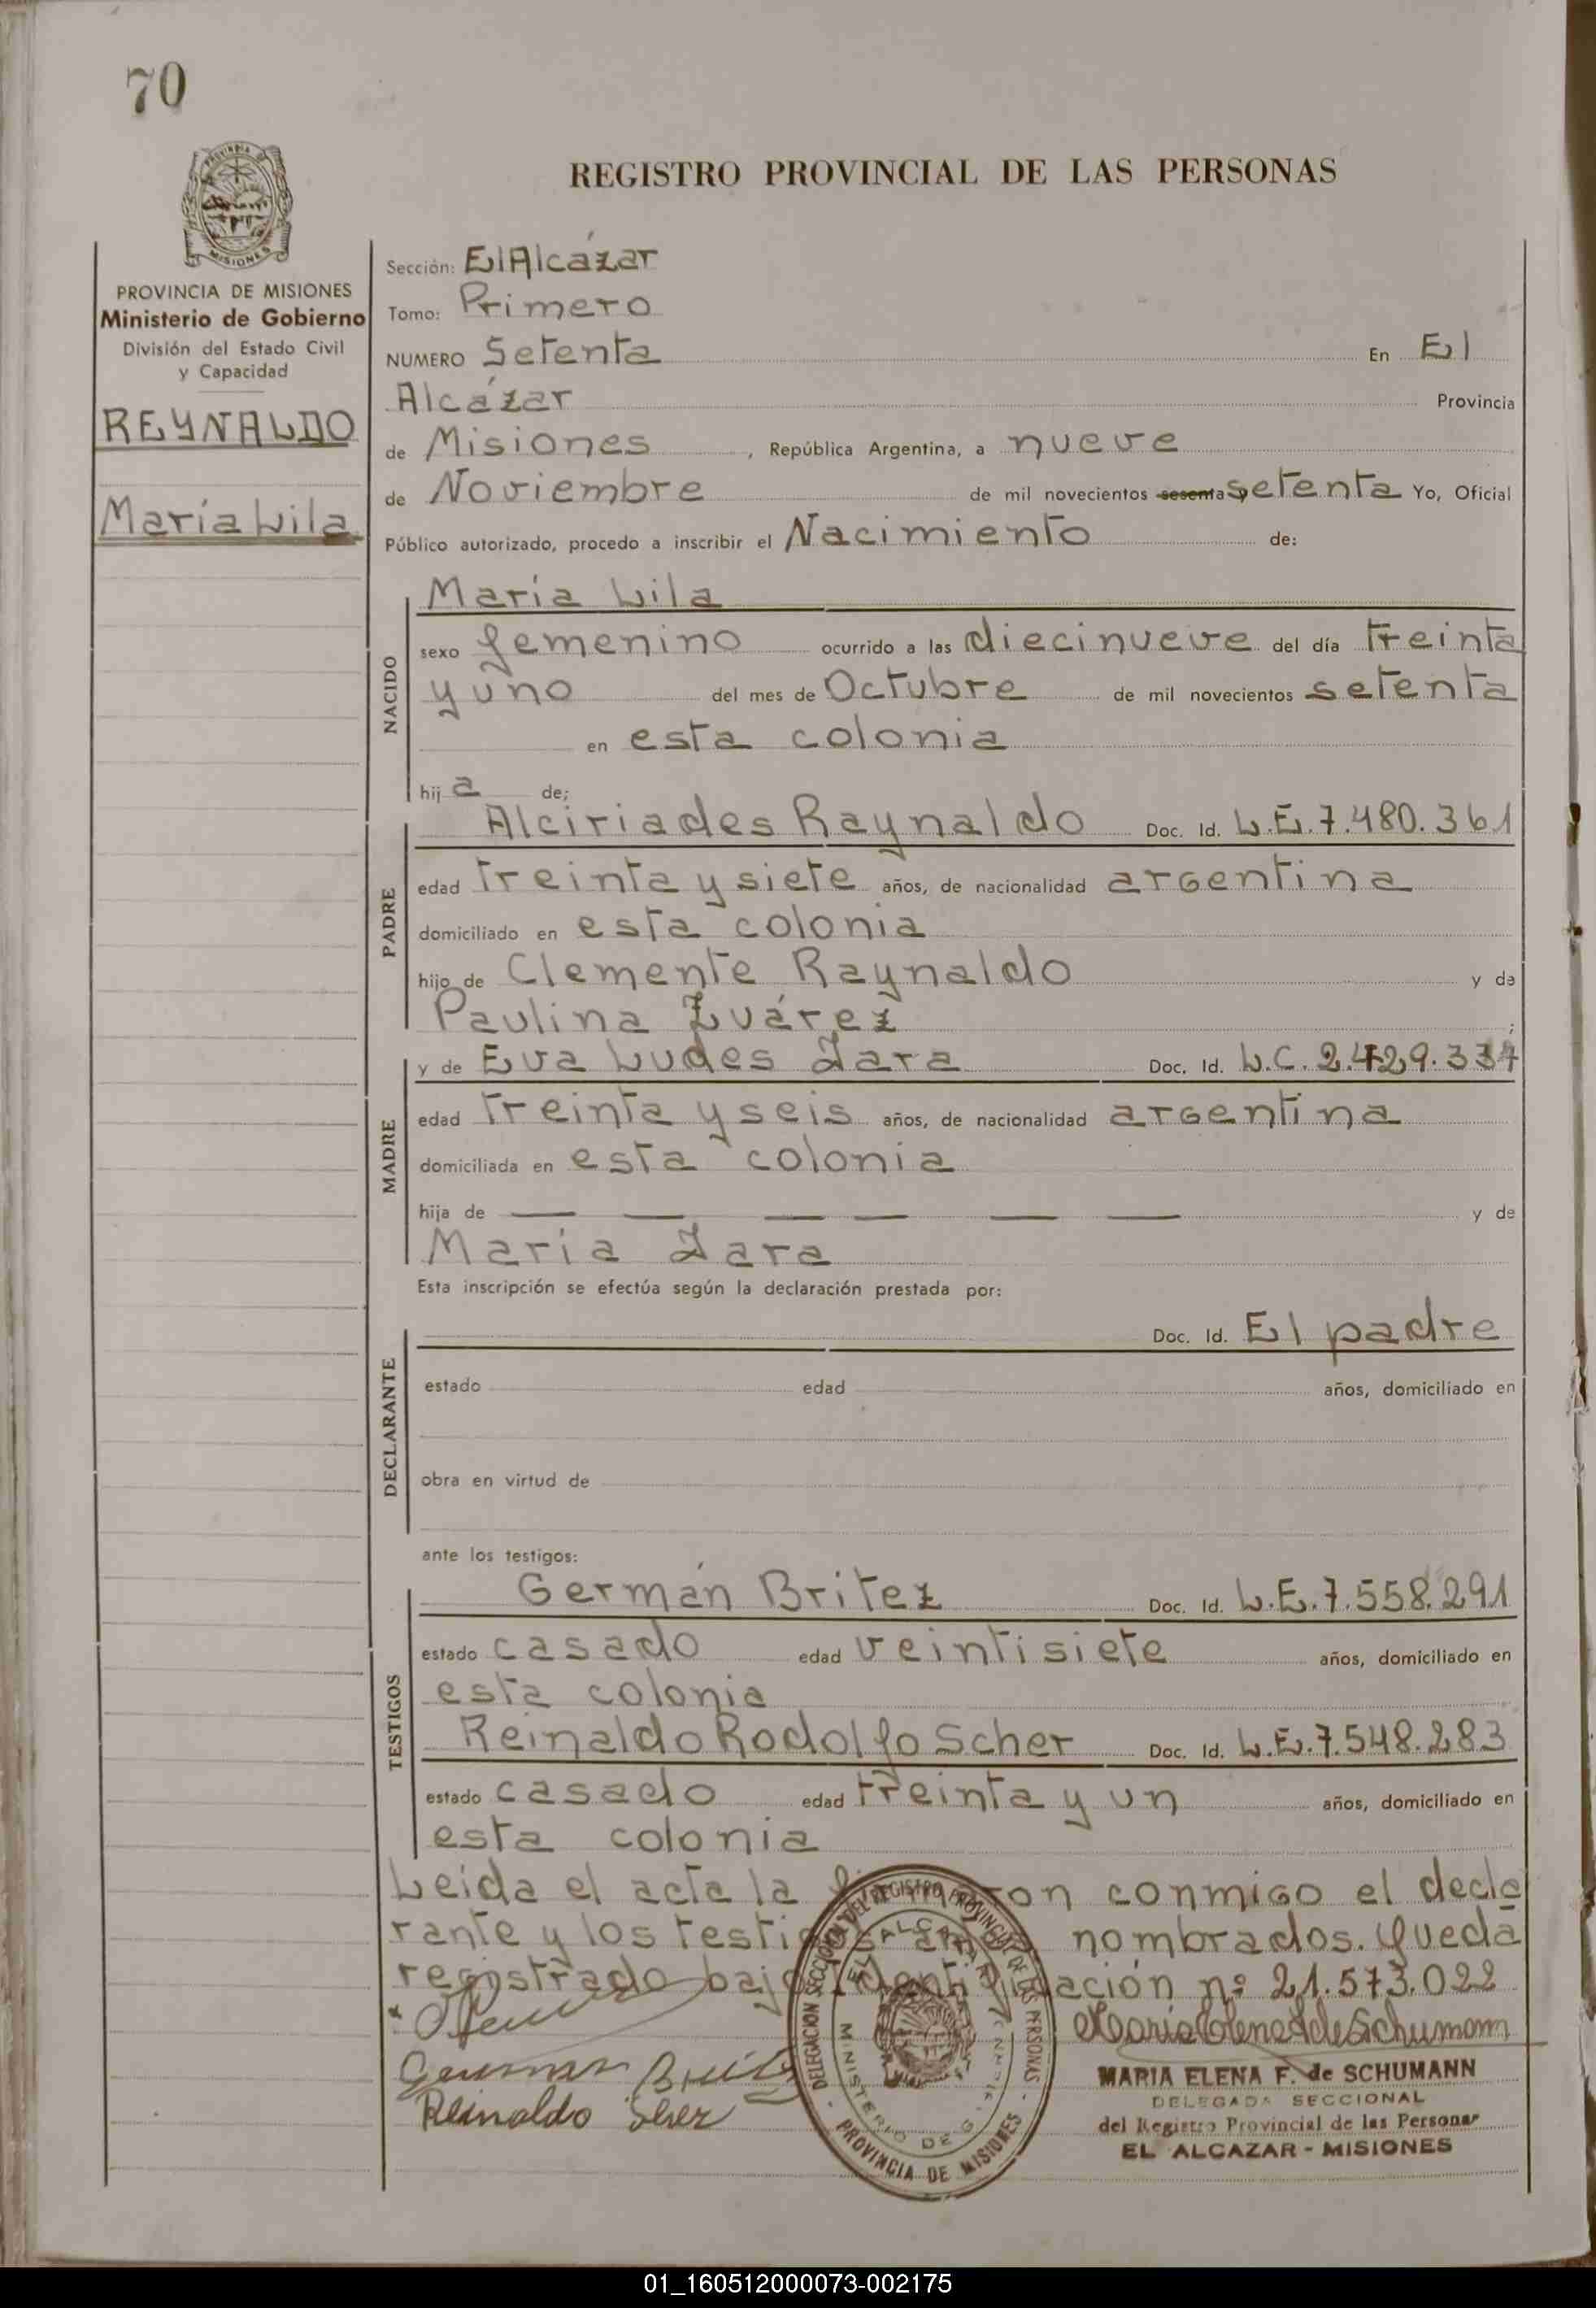 70
REGISTRO PROVINCIAL DE LAS PERSONAS
MISIONES
PROVINCIA DE MISIONES
Ministerio de Gobierno
División del Estado Civil
y Capacidad
REYNALDO
María Lila
Sección: El Alcázar
Tomo: Primero
NUMERO Setenta En El
Alcázar Provincia
de Misiones, República Argentina, a nueve
de Noviembre de mil novecientos sesenta setenta Yo, Oficial
Público autorizado, procedo a inscribir el Nacimiento de:
NACIDO
María Lila
sexo femenino ocurrido a las diecinueve del día treinta
y uno del mes de Octubre de mil novecientos setenta
en esta colonia
hija de;
PADRE
Alciriades Raynaldo Doc. Id. L.E.7.480.361
edad treinta y siete años, de nacionalidad argentina
domiciliado en esta colonia
hijo de Clemente Raynaldo y de
Paulina Zuárez;
MADRE
y de Eva Ludes Zara Doc. Id. L.C.
edad treinta y seis años, de nacionalidad argentina
domiciliada en esta colonia
hija de — — — — — — y de
María Zara
Esta inscripción se efectúa según la declaración prestada por:
DECLARANTE
Doc. Id. El padre
estado edad años, domiciliado en
obra en virtud de
ante los testigos:
TESTIGOS
Germán Britez Doc. Id. L.E.7.558.291
estado casado edad veintisiete años, domiciliado en
esta colonia
Reinaldo Rodolfo Scher Doc. Id. L.E.7.548.283
estado casado edad treinta y un años, domiciliado en
esta colonia
Leída el acta la firmaron conmigo el decla
rante y los testigos antes nombrados. Queda
registrado bajo identificación nº 21.573.022
German Britez
Reinaldo Scher
DELEGACION SECCIONAL DEL REGISTRO PROVINCIAL DE LAS PERSONAS
EL ALCAZAR
MINISTERIO DE
PROVINCIA DE MISIONES
Maria Elena F de Schumann
MARIA ELENA F. de SCHUMANN
DELEGADA SECCIONAL
del Registro Provincial de las Personas
EL ALCAZAR - MISIONES
01_160512000073-002175